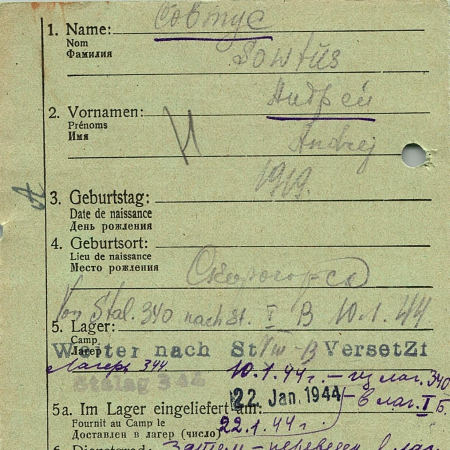 Совтус
1. Name:
Nom
Фамилия
Sowtus
Андрей
2. Vornamen:
Prénoms
Имя
Andrej
1919.
3. Geburtstag:
Date de naissance
День рождения
4. Geburtsort:
Lieu de naissance
Место рождения
Von Stal. 340 nach St. I B 10.1.44
5. Lager:
Camp
Лагерь
Weiter nach St VIII-B VersetZt
Лагерь 344
10.1.44г. – из лаг. 340
Stalag 344
22. Jan. 1944 – в лаг. I Б.
5a. Im Lager eingeliefert am:
Fournit au Camp le
22.1.44г
Доставлен в лагерь (число)
6. Dienstgrad: Затем – переведен в лаг.